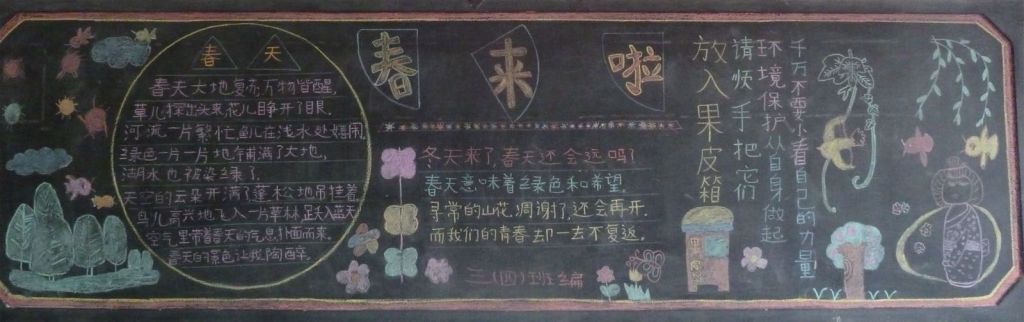 春天
春天大地复苏万物皆醒,
草儿探出头来花儿睁开了眼.
河流一片繁忙鱼儿在浅水处嬉闹,
绿色一片一片地铺满了大地,
湖水也被染绿了.
天空的云朵开满了蓬松地吊挂着,
鸟儿高兴地飞入一片草林
空气里带着春天的气息扑面而来.
春天的景色让我陶醉.
春来啦
冬天来了,春天还会远吗?
春天意味着绿色和希望,
寻常的山花,凋谢了,还会再开.
而我们的青春却一去不复返.
三(四)班编
千万不要小看自己的力量
环境保护从自身做起
请烦手把它们
放入果皮箱